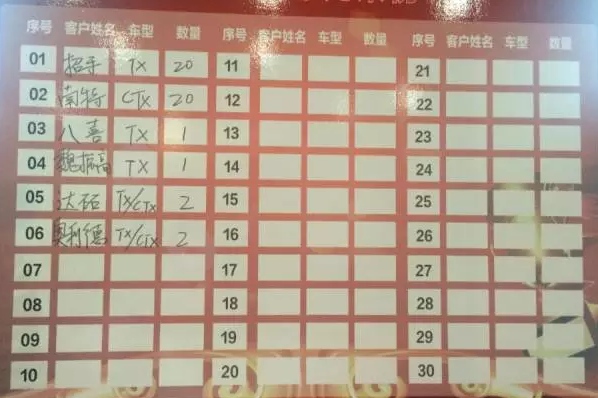 序号 客户姓名 车型 数量 序号 客户姓名 车型 数量 序号 客户姓名 车型 数量
01 招手 TX 20 11 21
02 南特 CTX 20 12 22
03 八喜 TX 1 13 23
04 魏振高 TX 1 14 24
05 达石 TX/CTX 2 15 25
06 奥利德 TX/CTX 2 16 26
07 17 27
08 18 28
09 19 29
10 20 30